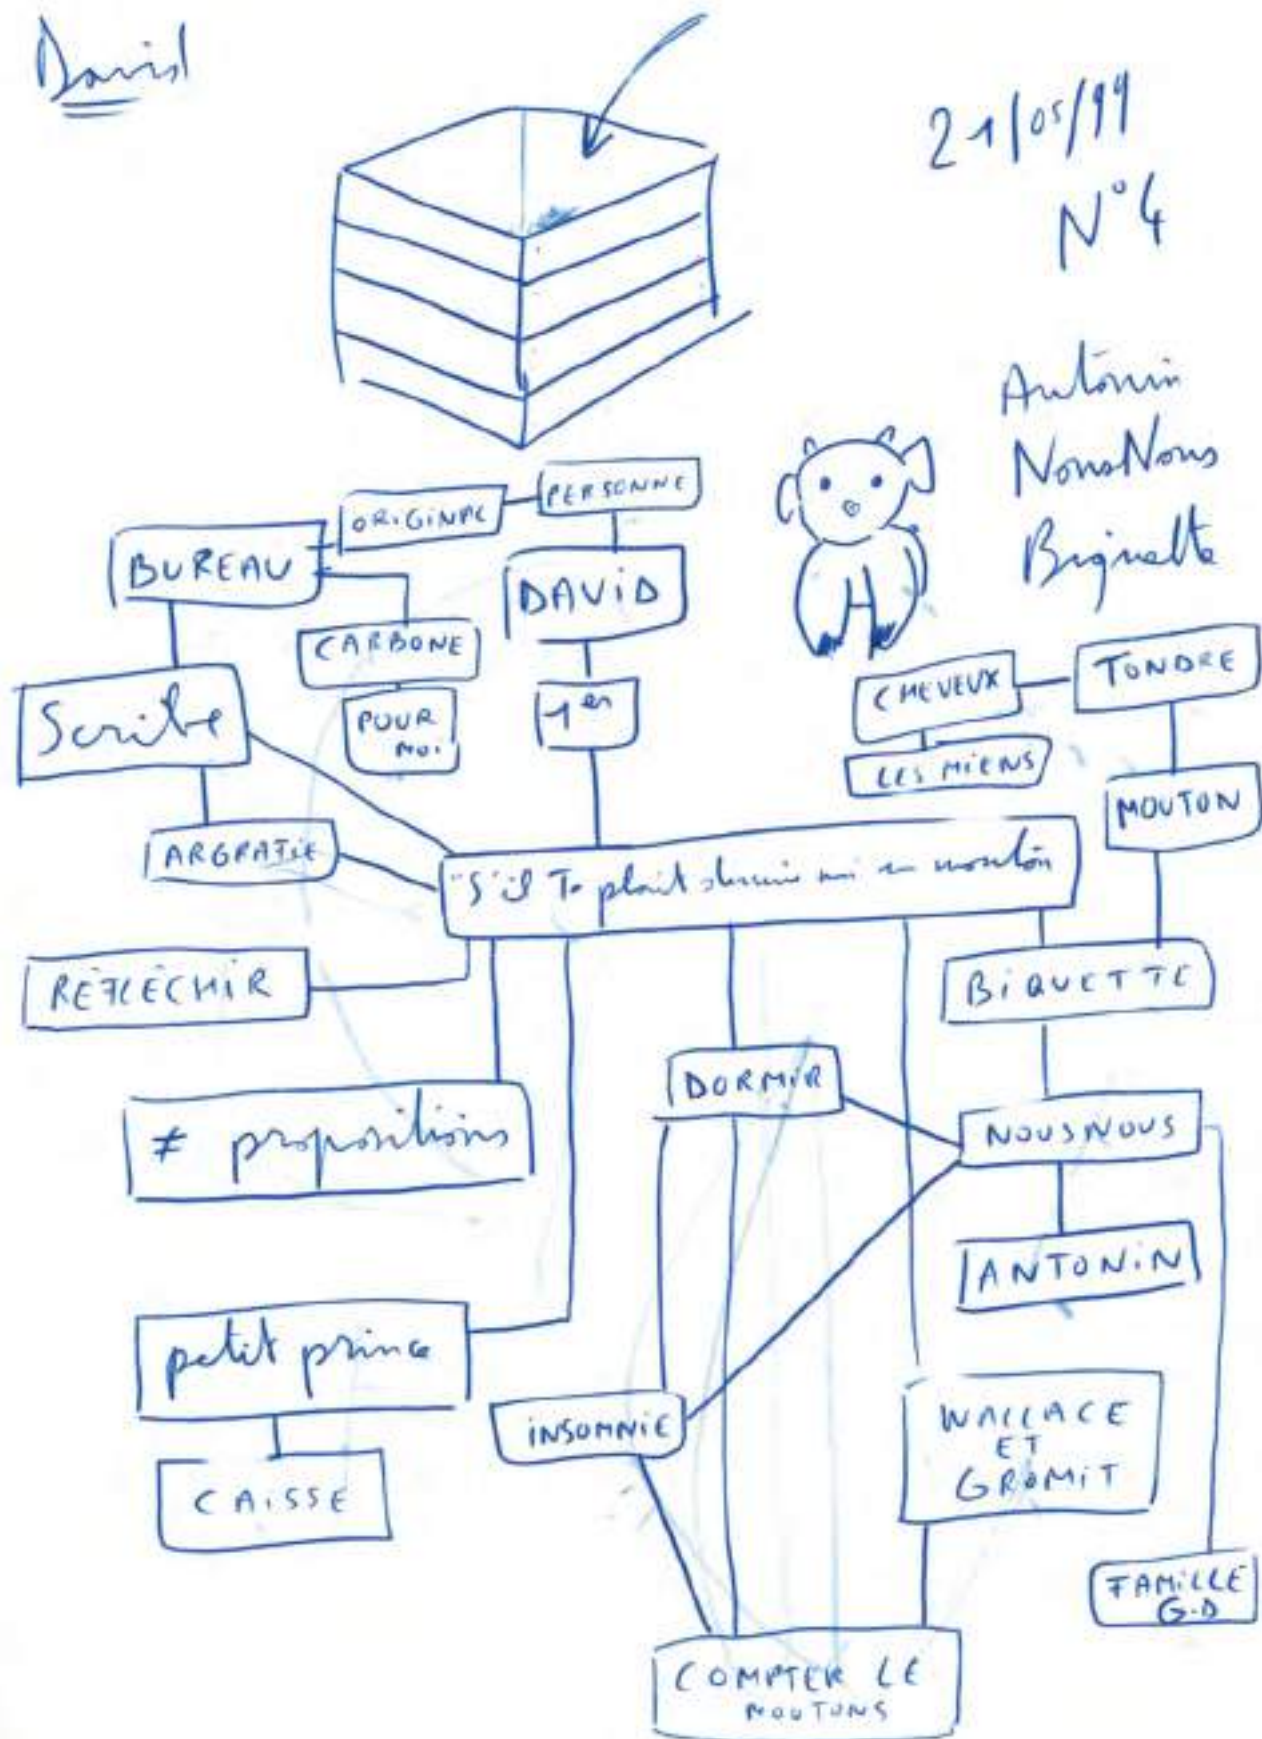 David
21/05/99
N°4
Antonin
NousNous
Biquette
ORIGINAL
PERSONNE
BUREAU
DAVID
CARBONE
CHEVEUX
TONDRE
Scribe
POUR
MOI
1er
LES MIENS
MOUTON
ARGRATIE
"S'il Te plait dessine moi un mouton
RÉFLÉCHIR
BIQUETTE
DORMIR
≠ propositions
NOUSNOUS
ANTONIN
petit prince
INSOMNIE
WALLACE
ET
GROMIT
CAISSE
FAMILLE
G.D
COMPTER LE
MOUTONS